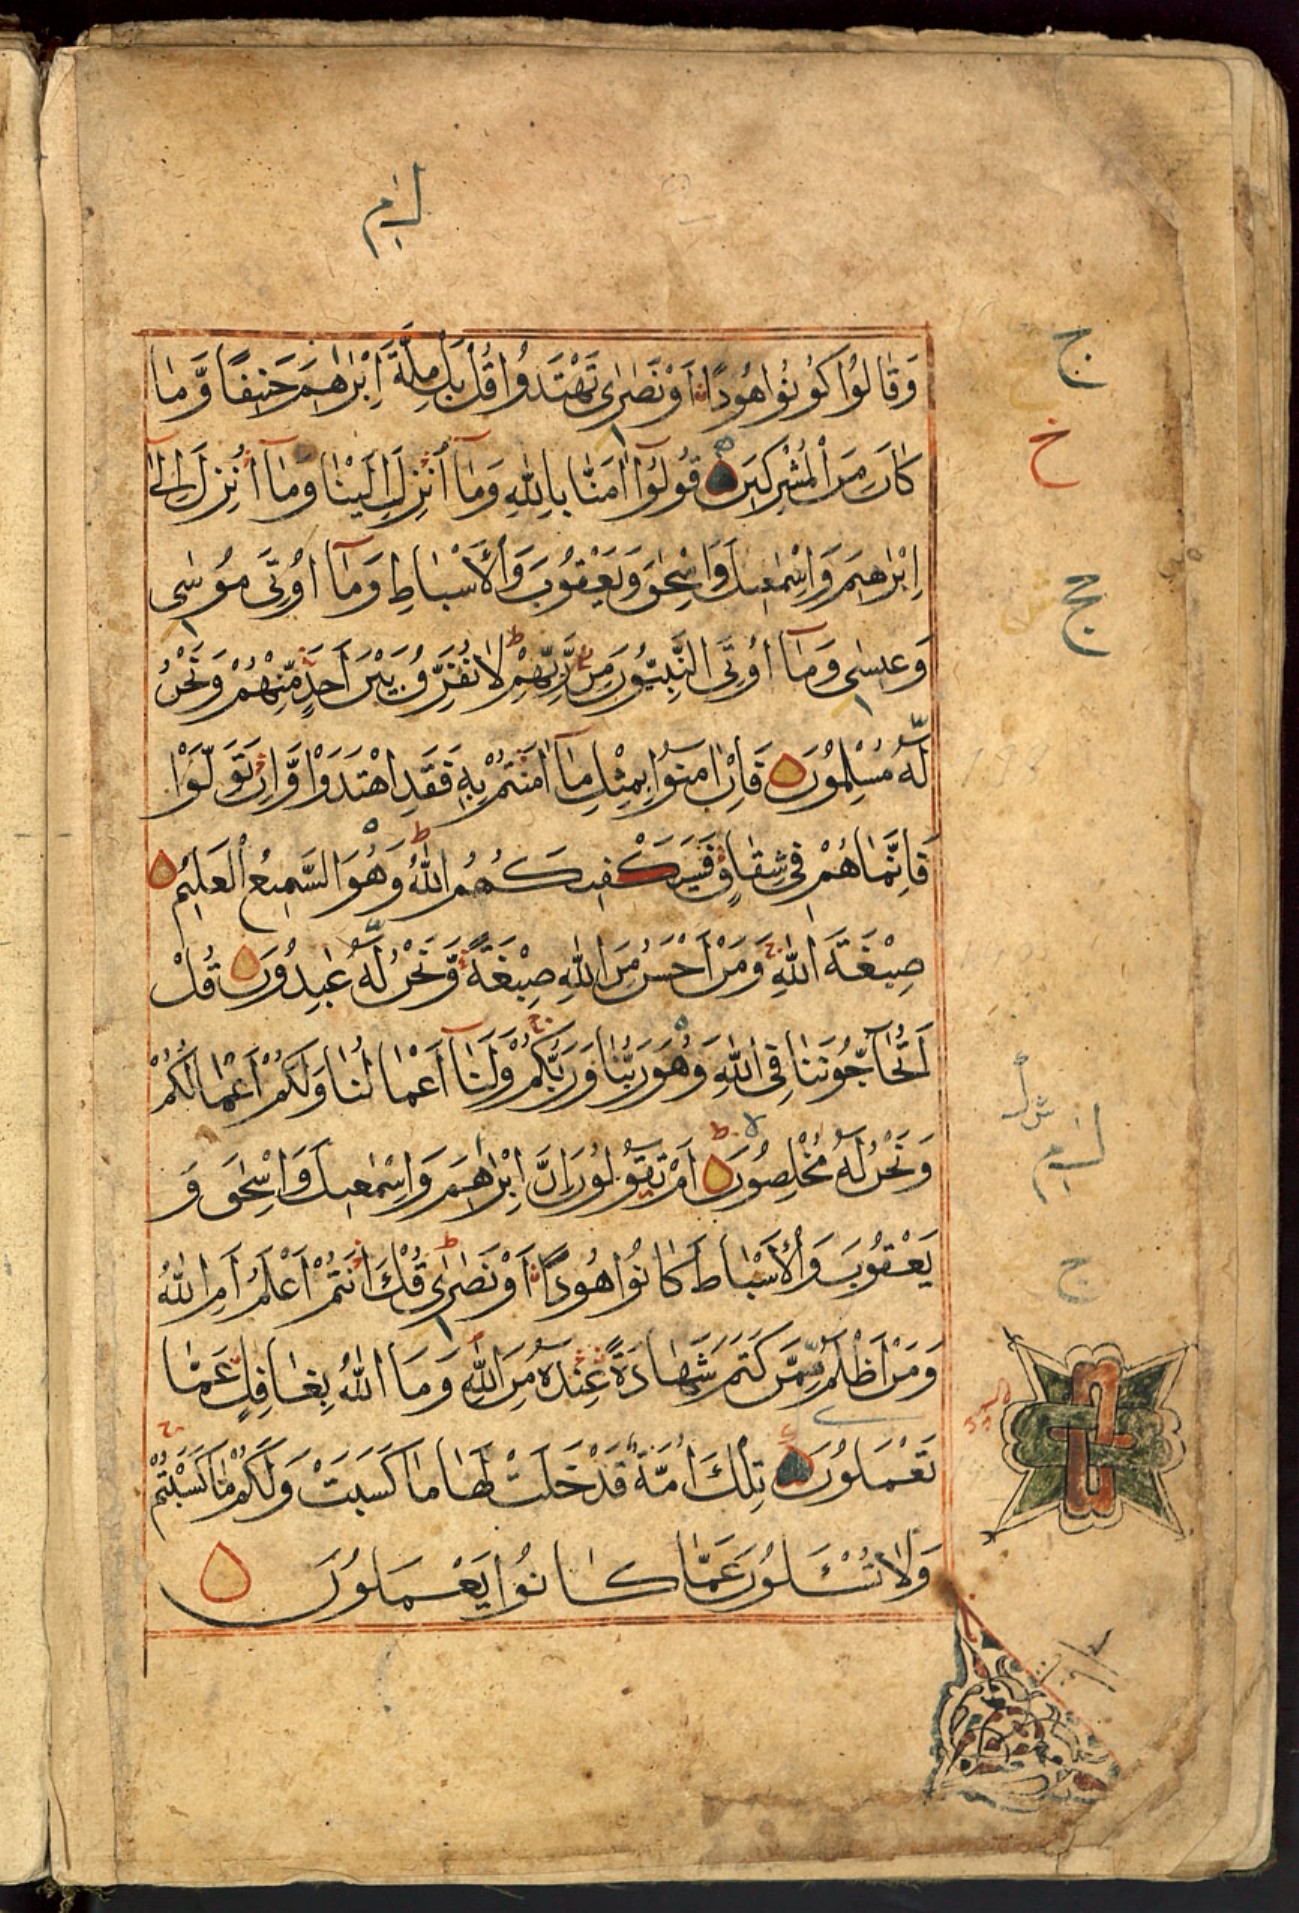 لنم
وَقَالُوا كُونُوا هُودًا اَوْ نَصٰرٰى تَهْتَدُوا قُلْ بَلْ مِلَّةَ اِبْرٰهٖمَ حَنِيفًا وَّمَا
كَانَ مِنَ الْمُشْرِكِينَ قُولُوٓا اٰمَنَّا بِاللّٰهِ وَمَآ اُنْزِلَ اِلَيْنَا وَمَآ اُنْزِلَ اِلٰٓى
اِبْرٰهٖمَ وَاِسْمٰعِيلَ وَاِسْحٰقَ وَيَعْقُوبَ وَالْاَسْبَاطِ وَمَآ اُوتِىَ مُوسٰى
وَعِيسٰى وَمَآ اُوتِىَ النَّبِيُّونَ مِنْ رَّبِّهِمْ لَا نُفَرِّقُ بَيْنَ اَحَدٍ مِّنْهُمْ وَنَحْنُ
لَهُ مُسْلِمُونَ فَاِنْ اٰمَنُوا بِمِثْلِ مَآ اٰمَنْتُمْ بِهٖ فَقَدِ اهْتَدَوْا وَّاِنْ تَوَلَّوْا
فَاِنَّمَا هُمْ فِى شِقَاقٍ فَسَيَكْفِيكَهُمُ اللّٰهُ وَهُوَ السَّمِيعُ الْعَلِيمُ
صِبْغَةَ اللّٰهِ وَمَنْ اَحْسَنُ مِنَ اللّٰهِ صِبْغَةً وَّنَحْنُ لَهُ عٰبِدُونَ قُلْ
اَتُحَآجُّونَنَا فِى اللّٰهِ وَهُوَ رَبُّنَا وَرَبُّكُمْ وَلَنَآ اَعْمَالُنَا وَلَكُمْ اَعْمَالُكُمْ
وَنَحْنُ لَهُ مُخْلِصُونَ اَمْ تَقُولُونَ اِنَّ اِبْرٰهٖمَ وَاِسْمٰعِيلَ وَاِسْحٰقَ وَ
يَعْقُوبَ وَالْاَسْبَاطَ كَانُوا هُودًا اَوْ نَصٰرٰى قُلْ ءَاَنْتُمْ اَعْلَمُ اَمِ اللّٰهُ
وَمَنْ اَظْلَمُ مِمَّنْ كَتَمَ شَهَادَةً عِنْدَهُ مِنَ اللّٰهِ وَمَا اللّٰهُ بِغَافِلٍ عَمَّا
تَعْمَلُونَ تِلْكَ اُمَّةٌ قَدْ خَلَتْ لَهَا مَا كَسَبَتْ وَلَكُمْ مَّا كَسَبْتُمْ
وَلَا تُسْـَٔلُونَ عَمَّا كَانُوا يَعْمَلُونَ
ج
خ
ج
ج